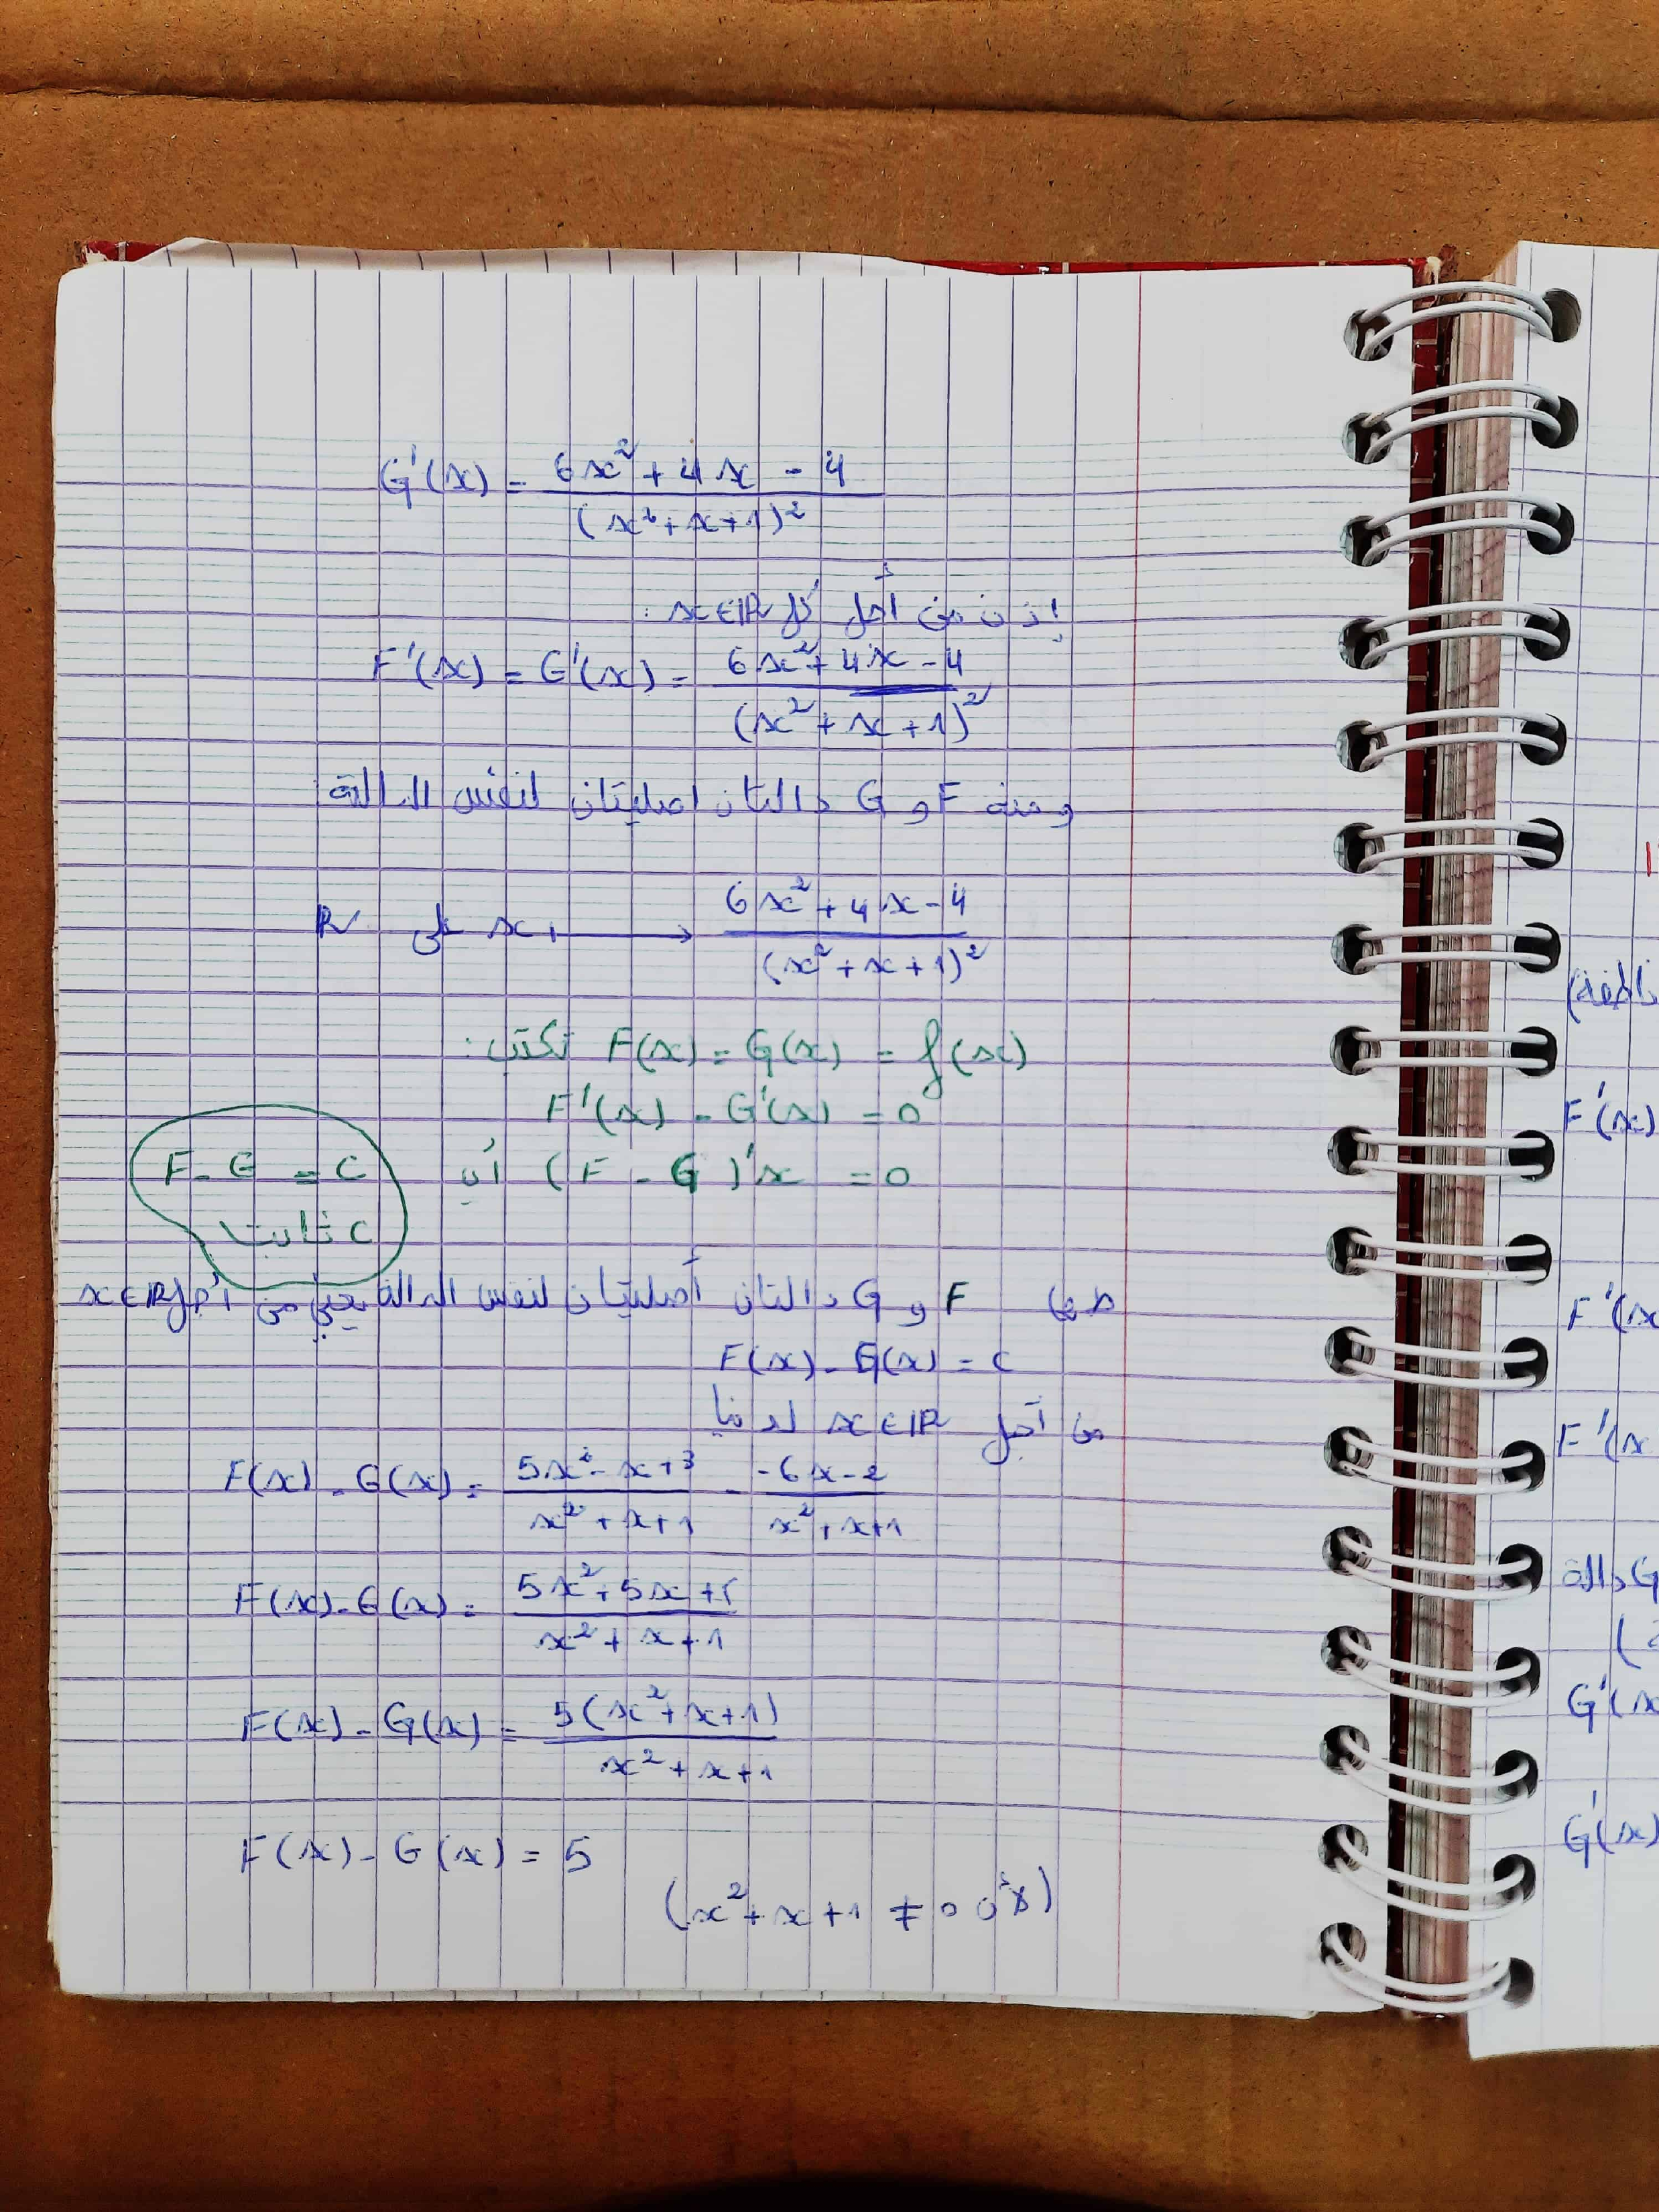 G'(x) = (6x² + 4x - 4) / (x² + x + 1)²
إذن من أجل كل x∈ℝ :
F'(x) = G'(x) = (6x² + 4x - 4) / (x² + x + 1)²
ومنه F و G دالتان اصليتان لنفس الدالة
x ⟼ (6x² + 4x - 4) / (x² + x + 1)² على ℝ
نكتب : F(x) = G(x) = f(x)
F'(x) - G'(x) = 0
أي (F - G)'x = 0
F - G = C
C ثابت
F و G دالتان أصليتان لنفس الدالة يعني من أجل x∈ℝ
F(x) - G(x) = c
من أجل x∈ℝ لدينا
F(x) - G(x) = (5x² - x + 3) / (x² + x + 1) - (-6x - 2) / (x² + x + 1)
F(x) - G(x) = (5x² + 5x + 5) / (x² + x + 1)
F(x) - G(x) = 5(x² + x + 1) / (x² + x + 1)
F(x) - G(x) = 5
(لأن x² + x + 1 ≠ 0)
F'(x)
F'(x
F'(x
G دالة
G'(x
G'(x)